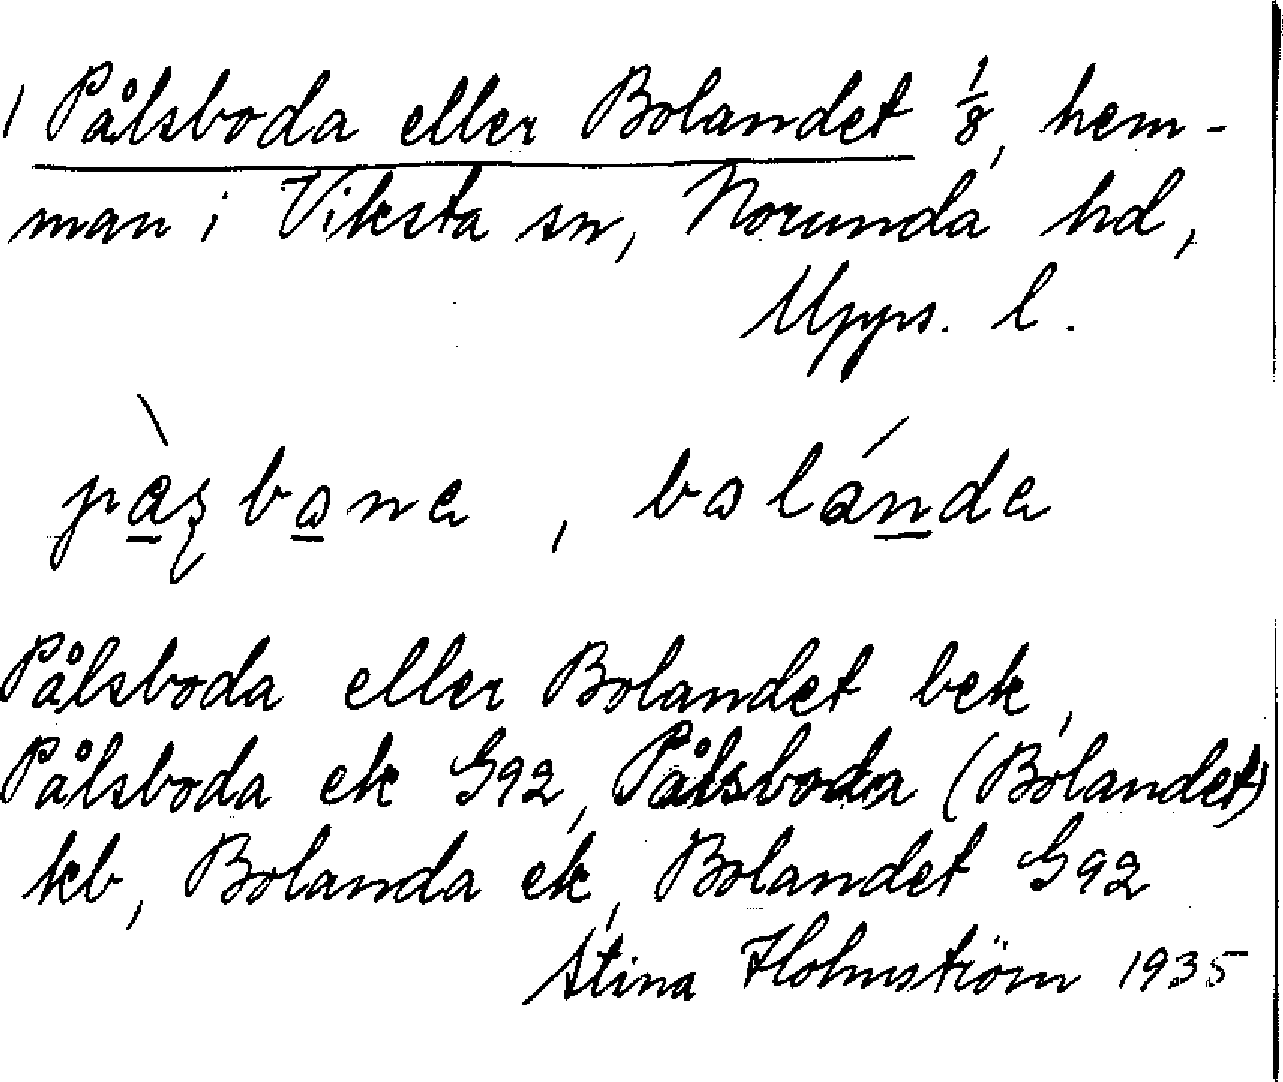 1 Pålsboda eller Bolandet 1/8, hem-
man i Viksta sn, Norunda hd,
Upps. l.
bolánda
Pålsboda eller Bolandet bek,
Pålsboda ek G92, Pålsboda (Bolandet)
kb, Bolanda ek, Bolandet G92
Stina Holmström 1935